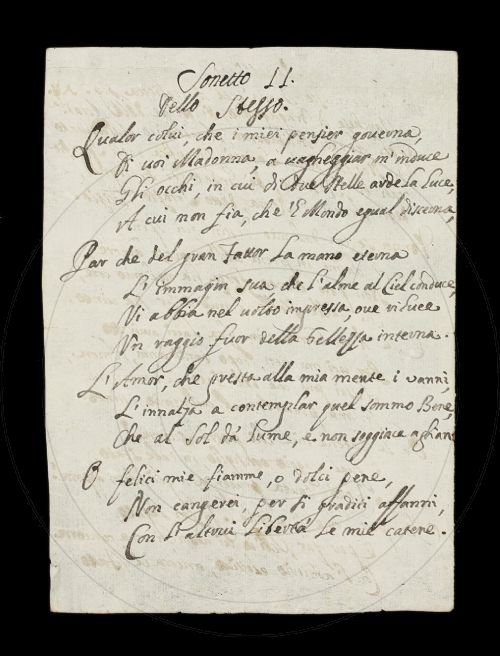 Sonetto II.
Dello Stesso.
Qualor colui, che i miei pensier governa,
Di voi Madonna, a vagheggiar m'induce
Gli occhi, in cui di due stelle arde la luce,
A cui non fia, che 'l Mondo egual discerna,
Par che del gran Fattor la mano eterna
L'immagin sua che l'alme al Ciel conduce,
Vi abbia nel volto impressa, ove riluce
Un raggio fuor della bellezza interna.
L'Amor, che presta alla mia mente i vanni,
L'innalza a contemplar quel sommo Bene,
Che al Sol dà lume, e non soggiace a gli anni
O felici mie fiamme, o dolci pene,
Non cangerei, per sì graditi affanni,
Con l'altrui libertà le mie catene.